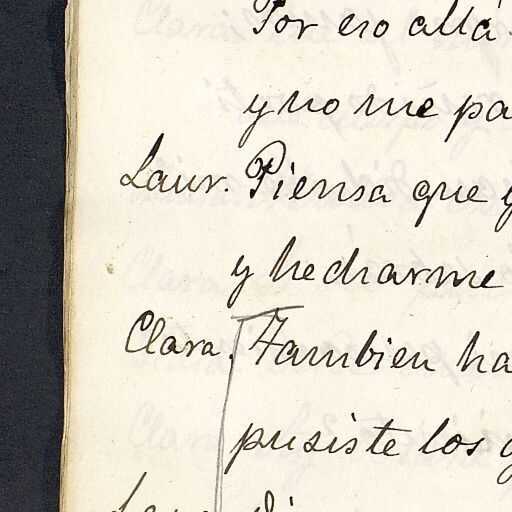 Por eso allá
y no me pa
Laur. Piensa que y
y hecharme
Clara. Tambien ha
pusiste los